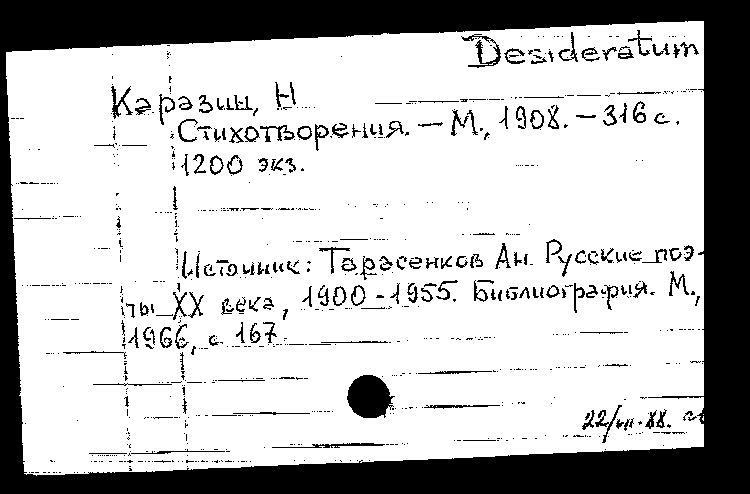 Desideratum
Каразин, Н
Стихотворения. — М., 1908. — 316 с.
1200 экз.
Источник: Тарасенков Ан. Русские поэ-
ты XX века, 1900-1955. Библиография. М.,
1966, с 167.
22/VII-88.